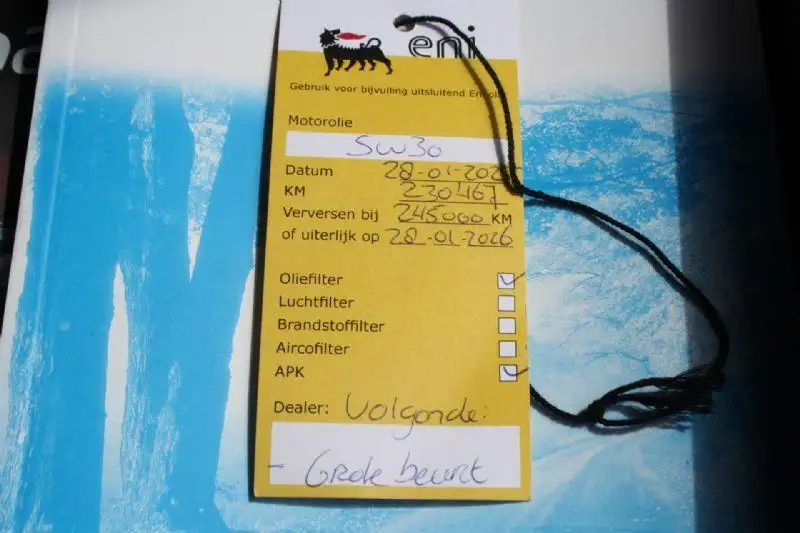 eni
Gebruik voor bijvulling uitsluitend Eni oli
Motorolie
5W30
Datum 28-01-202
KM 230467
Verversen bij 245000 KM
of uiterlijk op 28-01-2026
Oliefilter
Luchtfilter
Brandstoffilter
Aircofilter
APK
Dealer: Volgende:
- Grote beurt